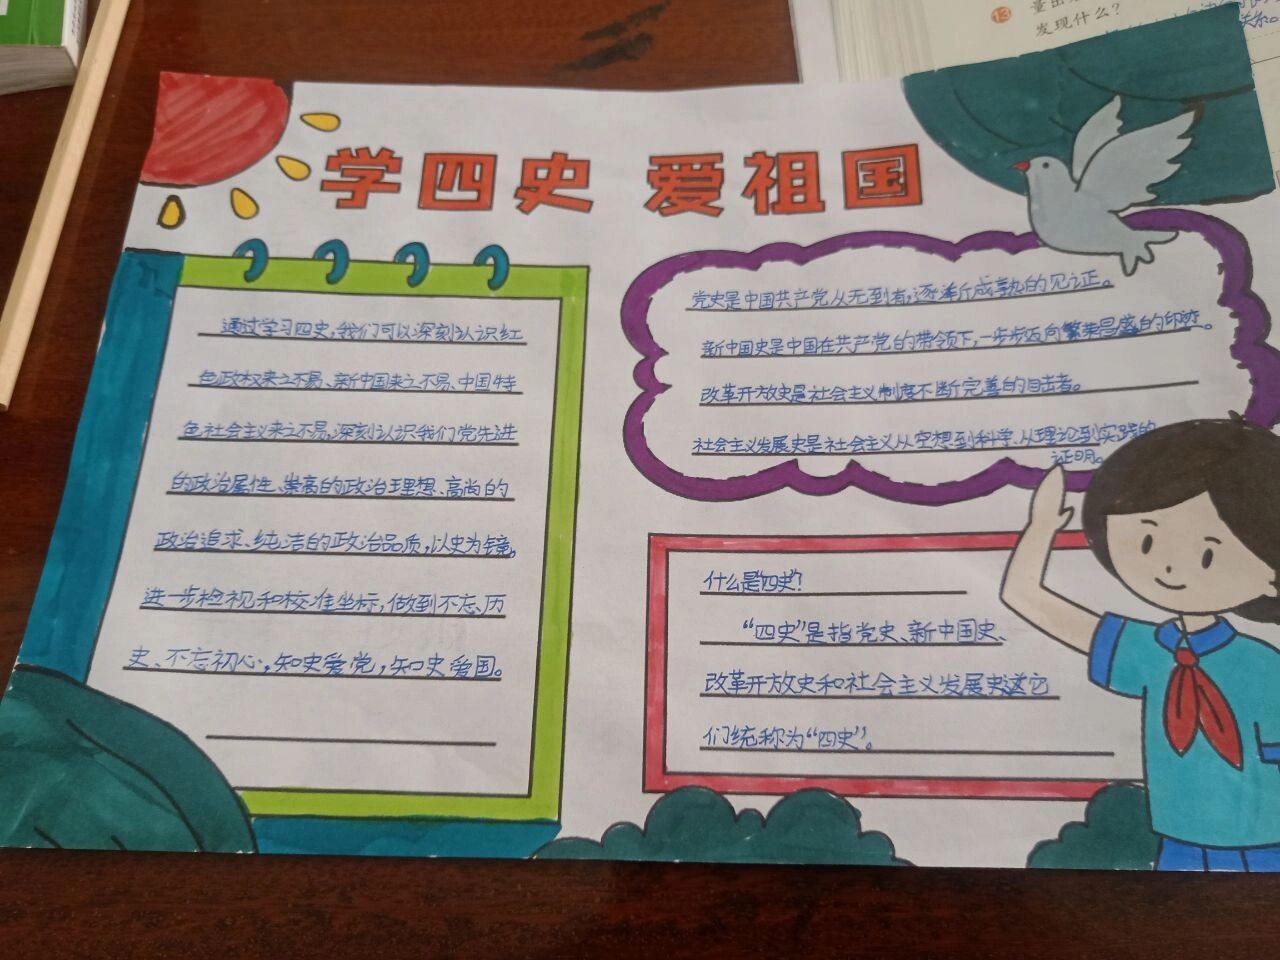 学四史 爱祖国
通过学习四史,我们可以深刻认识红
色政权来之不易、新中国来之不易、中国特
色社会主义来之不易,深刻认识我们党先进
的政治属性、崇高的政治理想、高尚的
政治追求、纯洁的政治品质,以史为镜,
进一步检视和校准坐标,做到不忘历
史、不忘初心,知史爱党,知史爱国。
党史是中国共产党从无到有,逐渐成熟的见证。
新中国史是中国在共产党的带领下,一步步迈向繁荣昌盛的印迹。
改革开放史是社会主义制度不断完善的目击者。
社会主义发展史是社会主义从空想到科学、从理论到实践的
证明。
什么是“四史”?
“四史”是指党史、新中国史、
改革开放史和社会主义发展史这它
们统称为“四史”。
13
发现什么?